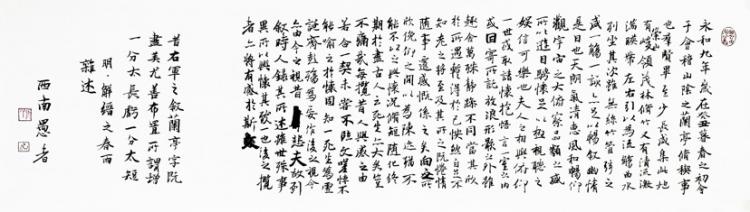 永和九年歲在癸丑暮春之初會
于會稽山陰之蘭亭脩稧事
也羣賢畢至少長咸集此地
有崇山峻領茂林脩竹又有清流激
湍暎帶左右引以為流觴曲水
列坐其次雖無絲竹管弦之
盛一觴一詠亦足以暢敘幽情
是日也天朗氣清惠風和暢仰
觀宇宙之大俯察品類之盛
所以遊目騁懷足以極視聽之
娛信可樂也夫人之相與俯仰
一世或取諸懷抱悟言一室之內
或因寄所託放浪形骸之外雖
趣舍萬殊靜躁不同當其欣
於所遇暫得於己怏然自足不
知老之將至及其所之既惓情
隨事遷感慨係之矣向之所
欣俛仰之閒以為陳迹猶不
能不以之興懷況脩短隨化終
期於盡古人云死生亦大矣豈
不痛哉每攬昔人興感之由
若合一契未嘗不臨文嗟悼不
能喻之於懷固知一死生為虛
誕齊彭殤為妄作後之視今
亦由今之視昔悲夫故列
敘時人錄其所述雖世殊事
異所以興懷其致一也後之攬
者亦將有感於斯文
昔右軍之敘蘭亭字既
盡美尤善布置所謂增
一分太長虧一分太短
明·解縉之春雨
雜述
西南愚者